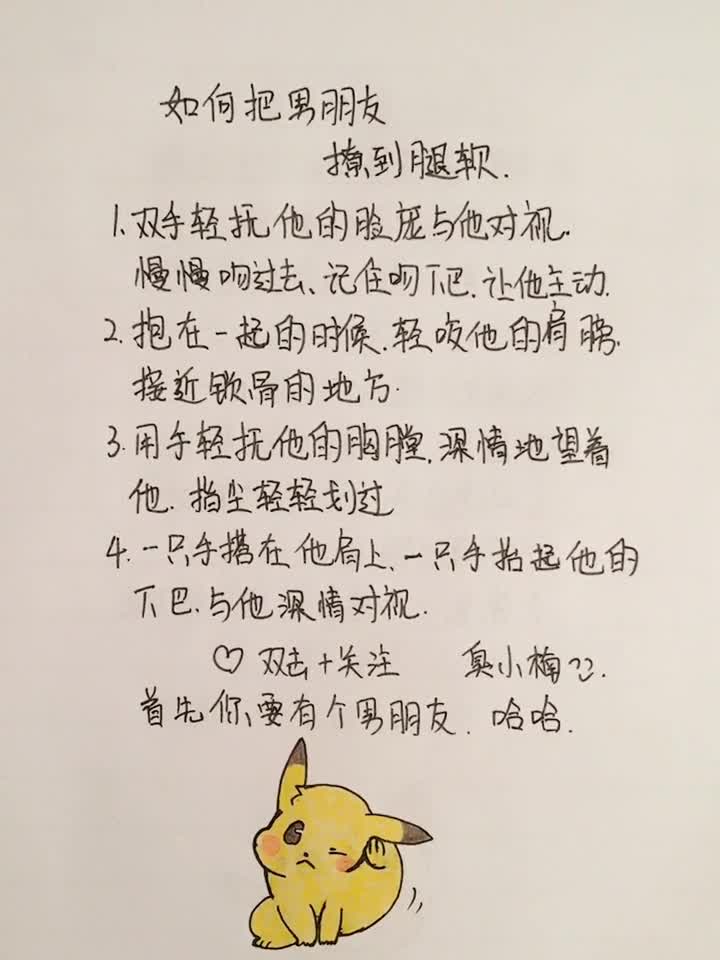 如何把男朋友
撩到腿软.
1.双手轻抚他的脸庞与他对视.
慢慢吻过去、记住吻下巴.让他主动.
2.抱在一起的时候.轻咬他的肩膀.
接近锁骨的地方.
3.用手轻抚他的胸膛.深情地望着
他.指尖轻轻划过
4.一只手搭在他肩上、一只手抬起他的
下巴.与他深情对视.
♡双击+关注 臭小楠
首先你要有个男朋友.哈哈.